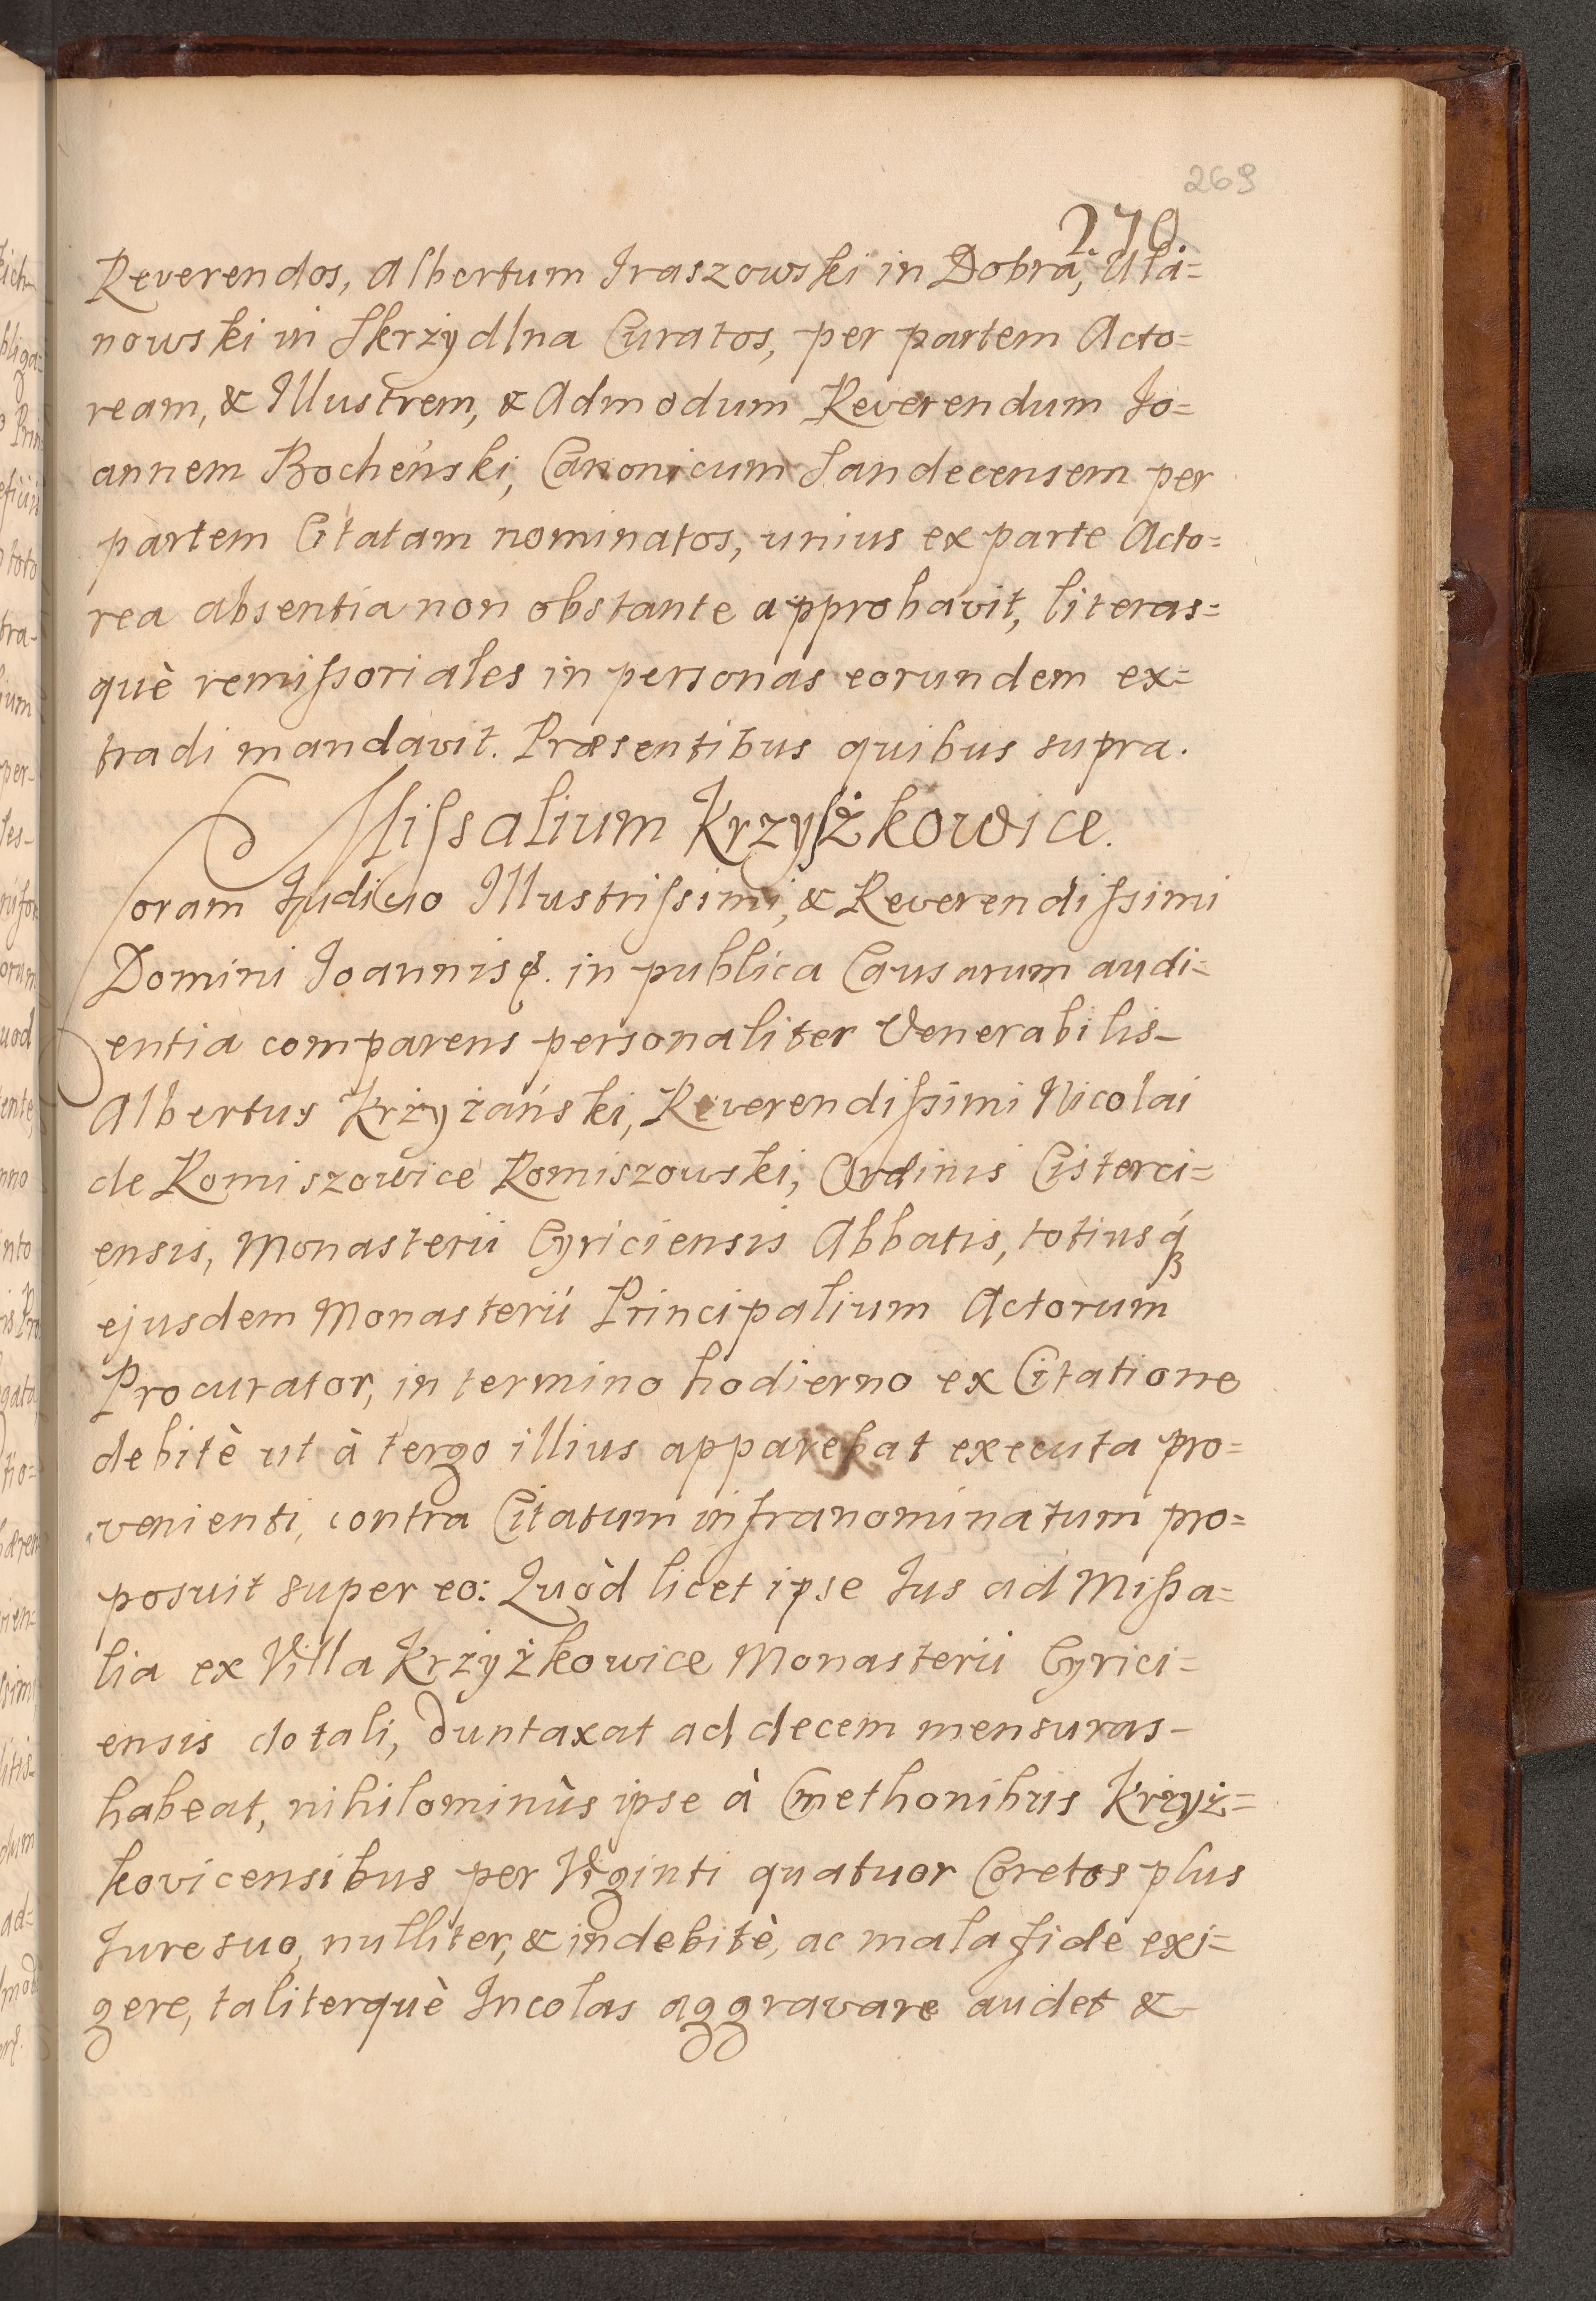 269
270.
Reverendos, Albertum Iraszowski in Dobra, Ula=
nowski in Skrżydlna Curatos, per partem Acto=
ream, & Illustrem, & Admodum Reverendum Jo=
annem Bocheński, Canonicum Sandecensem per
partem Citatam nominatos, unius ex parte Acto=
rea absentia non obstante approbavit, literas=
què remiſsoriales in personas eorundem ex=
tradi mandavit. Præsentibus quibus supra.
Miſsalium Krzyſżkowice.
Coram Judicio Illustriſsimi, & Reverendiſsimi
Domini Joannis &. in publica Causarum audi=
entia comparens personaliter Venerabilis
Albertus Krżyżański, Reverendiſsimi Nicolai
de Komiszowice Komiszowski, Ordinis Cisterci=
ensis, Monasterii Cyriciensis Abbatis, totiusq́ꝫ
ejusdem Monasterii Principalium Actorum
Procurator, in termino hodierno ex Citatione
debitè ut à tergo illius apparebat executa pro=
venienti, contra Citatum infranominatum pro=
posuit super eo: Quòd licet ipse Jus ad Miſsa=
lia ex Villa Krżyżkowice Monasterii Cyrici=
ensis dotali, duntaxat ad decem mensuras
habeat, nihilominùs ipse à Cmethonibus Krzyż=
kovicensibus per Viginti quatuor Coretos plus
Jure suo, nulliter, & indebitè, ac mala fide exi=
gere, taliterquè Incolas aggravare audet &